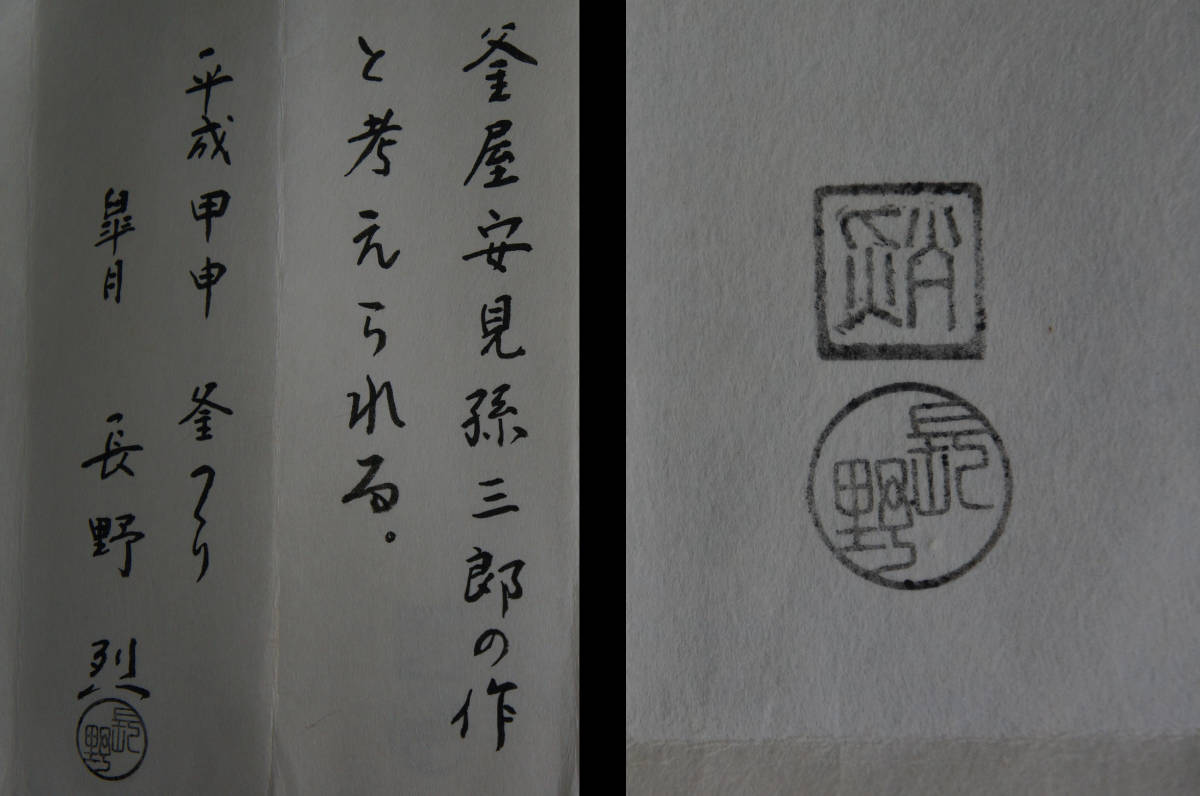 釜屋安見孫三郎の作
と考えられる。
平成甲申 釜つくり
皐月 長野 烈
長野
長野